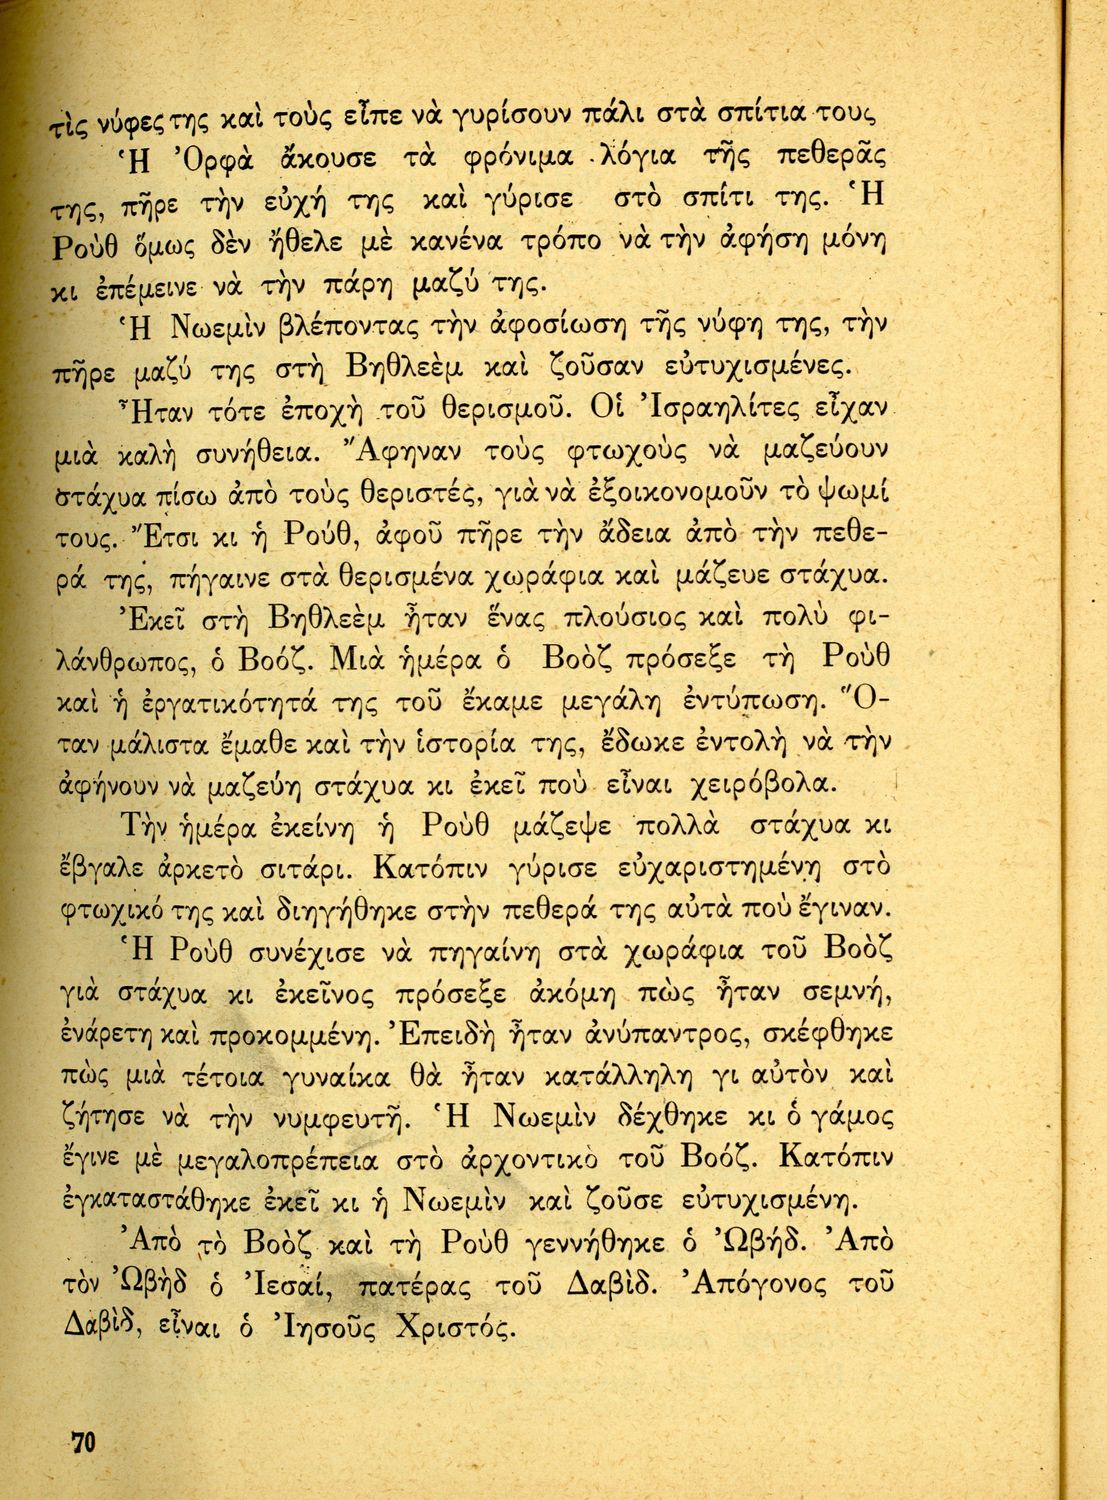 τὶς νύφες της καὶ τοὺς εἶπε νὰ γυρίσουν πάλι στὰ σπίτια τους
Ἡ Ὀρφὰ ἄκουσε τὰ φρόνιμα λόγια τῆς πεθερᾶς
της, πῆρε τὴν εὐχή της καὶ γύρισε στὸ σπίτι της. Ἡ
Ροὺθ ὅμως δὲν ἤθελε μὲ κανένα τρόπο νὰ τὴν ἀφήση μόνη
κι ἐπέμεινε νὰ τὴν πάρη μαζύ της.
Ἡ Νωεμὶν βλέποντας τὴν ἀφοσίωση τῆς νύφη της, τὴν
πῆρε μαζύ της στὴ Βηθλεὲμ καὶ ζοῦσαν εὐτυχισμένες.
Ἦταν τότε ἐποχὴ τοῦ θερισμοῦ. Οἱ Ἰσραηλίτες εἶχαν
μιὰ καλὴ συνήθεια. Ἄφηναν τοὺς φτωχοὺς νὰ μαζεύουν
στάχυα πίσω ἀπὸ τοὺς θεριστές, γιὰ νὰ ἐξοικονομοῦν τὸ ψωμί
τους. Ἔτσι κι ἡ Ρούθ, ἀφοῦ πῆρε τὴν ἄδεια ἀπὸ τὴν πεθε-
ρά της, πήγαινε στὰ θερισμένα χωράφια καὶ μάζευε στάχυα.
Ἐκεῖ στὴ Βηθλεὲμ ἦταν ἕνας πλούσιος καὶ πολὺ φι-
λάνθρωπος, ὁ Βοόζ. Μιὰ ἡμέρα ὁ Βοὸζ πρόσεξε τὴ Ροὺθ
καὶ ἡ ἐργατικότητά της τοῦ ἔκαμε μεγάλη ἐντύπωση. Ὅ-
ταν μάλιστα ἔμαθε καὶ τὴν ἱστορία της, ἔδωκε ἐντολὴ νὰ τὴν
ἀφήνουν νὰ μαζεύη στάχυα κι ἐκεῖ ποὺ εἶναι χειρόβολα.
Τὴν ἡμέρα ἐκείνη ἡ Ροὺθ μάζεψε πολλὰ στάχυα κι
ἔβγαλε ἀρκετὸ σιτάρι. Κατόπιν γύρισε εὐχαριστημένη στὸ
φτωχικό της καὶ διηγήθηκε στὴν πεθερά της αὐτὰ ποὺ ἔγιναν.
Ἡ Ροὺθ συνέχισε νὰ πηγαίνη στὰ χωράφια τοῦ Βοὸζ
γιὰ στάχυα κι ἐκεῖνος πρόσεξε ἀκόμη πὼς ἦταν σεμνή,
ἐνάρετη καὶ προκομμένη. Ἐπειδὴ ἦταν ἀνύπαντρος, σκέφθηκε
πὼς μιὰ τέτοια γυναίκα θὰ ἦταν κατάλληλη γι αὐτὸν καὶ
ζήτησε νὰ τὴν νυμφευτῆ. Ἡ Νωεμὶν δέχθηκε κι ὁ γάμος
ἔγινε μὲ μεγαλοπρέπεια στὸ ἀρχοντικὸ τοῦ Βοόζ. Κατόπιν
ἐγκαταστάθηκε ἐκεῖ κι ἡ Νωεμὶν καὶ ζοῦσε εὐτυχισμένη.
Ἀπὸ τὸ Βοὸζ καὶ τὴ Ροὺθ γεννήθηκε ὁ Ὠβήδ. Ἀπὸ
τὸν Ὠβὴδ ὁ Ἰεσαί, πατέρας τοῦ Δαβὶδ. Ἀπόγονος τοῦ
Δαβὶδ, εἶναι ὁ Ἰησοῦς Χριστός.
70